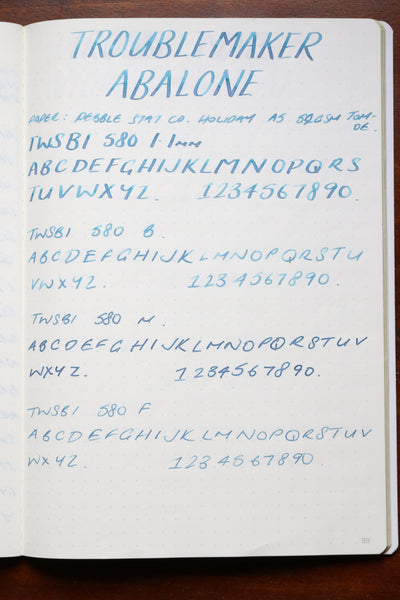 TROUBLEMAKER
ABALONE
PAPER: PEBBLE STAT CO. HOLIDAY A5 52GSM TOM-
OE.
TWSBI 580 1.1MM
ABCDEFGHIJKLMNOPQRS
TUVWXYZ. 1234567890.
TWSBI 580 B.
ABCDEFGHIJKLMNOPQRSTU
VWXYZ. 1234567890.
TWSBI 580 M.
ABCDEFGHIJKLMNOPQRSTUV
WXYZ. 1234567890.
TWSBI 580 F
ABCDEFGHIJKLMNOPQRSTUV
WXYZ. 1234567890.